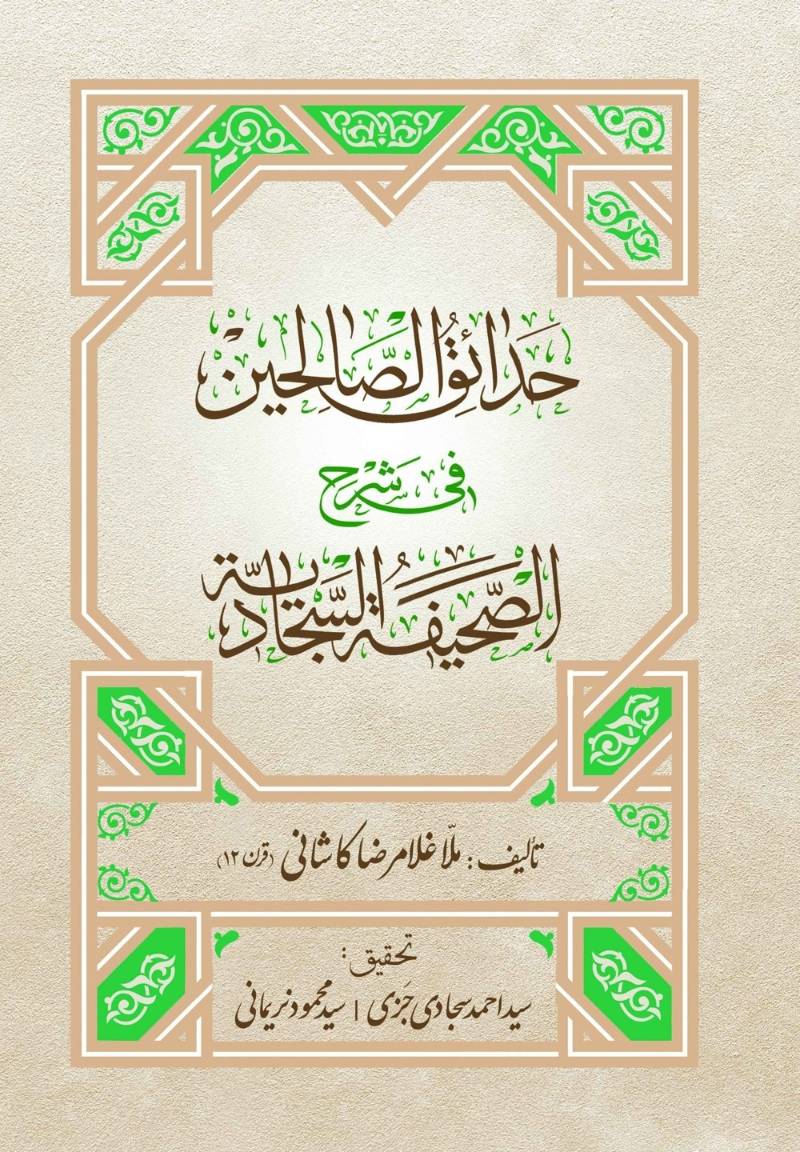 حَدائِقُ الصَّالِحیْن
فی شَرْح
الصَّحیفَةُ السَّجّادیَّة
تألیف: ملّا غلامرضا کاشانی (قرن ۱۲)
تحقیق:
سید احمد سجادی جَزی | سید محمود نریمانی